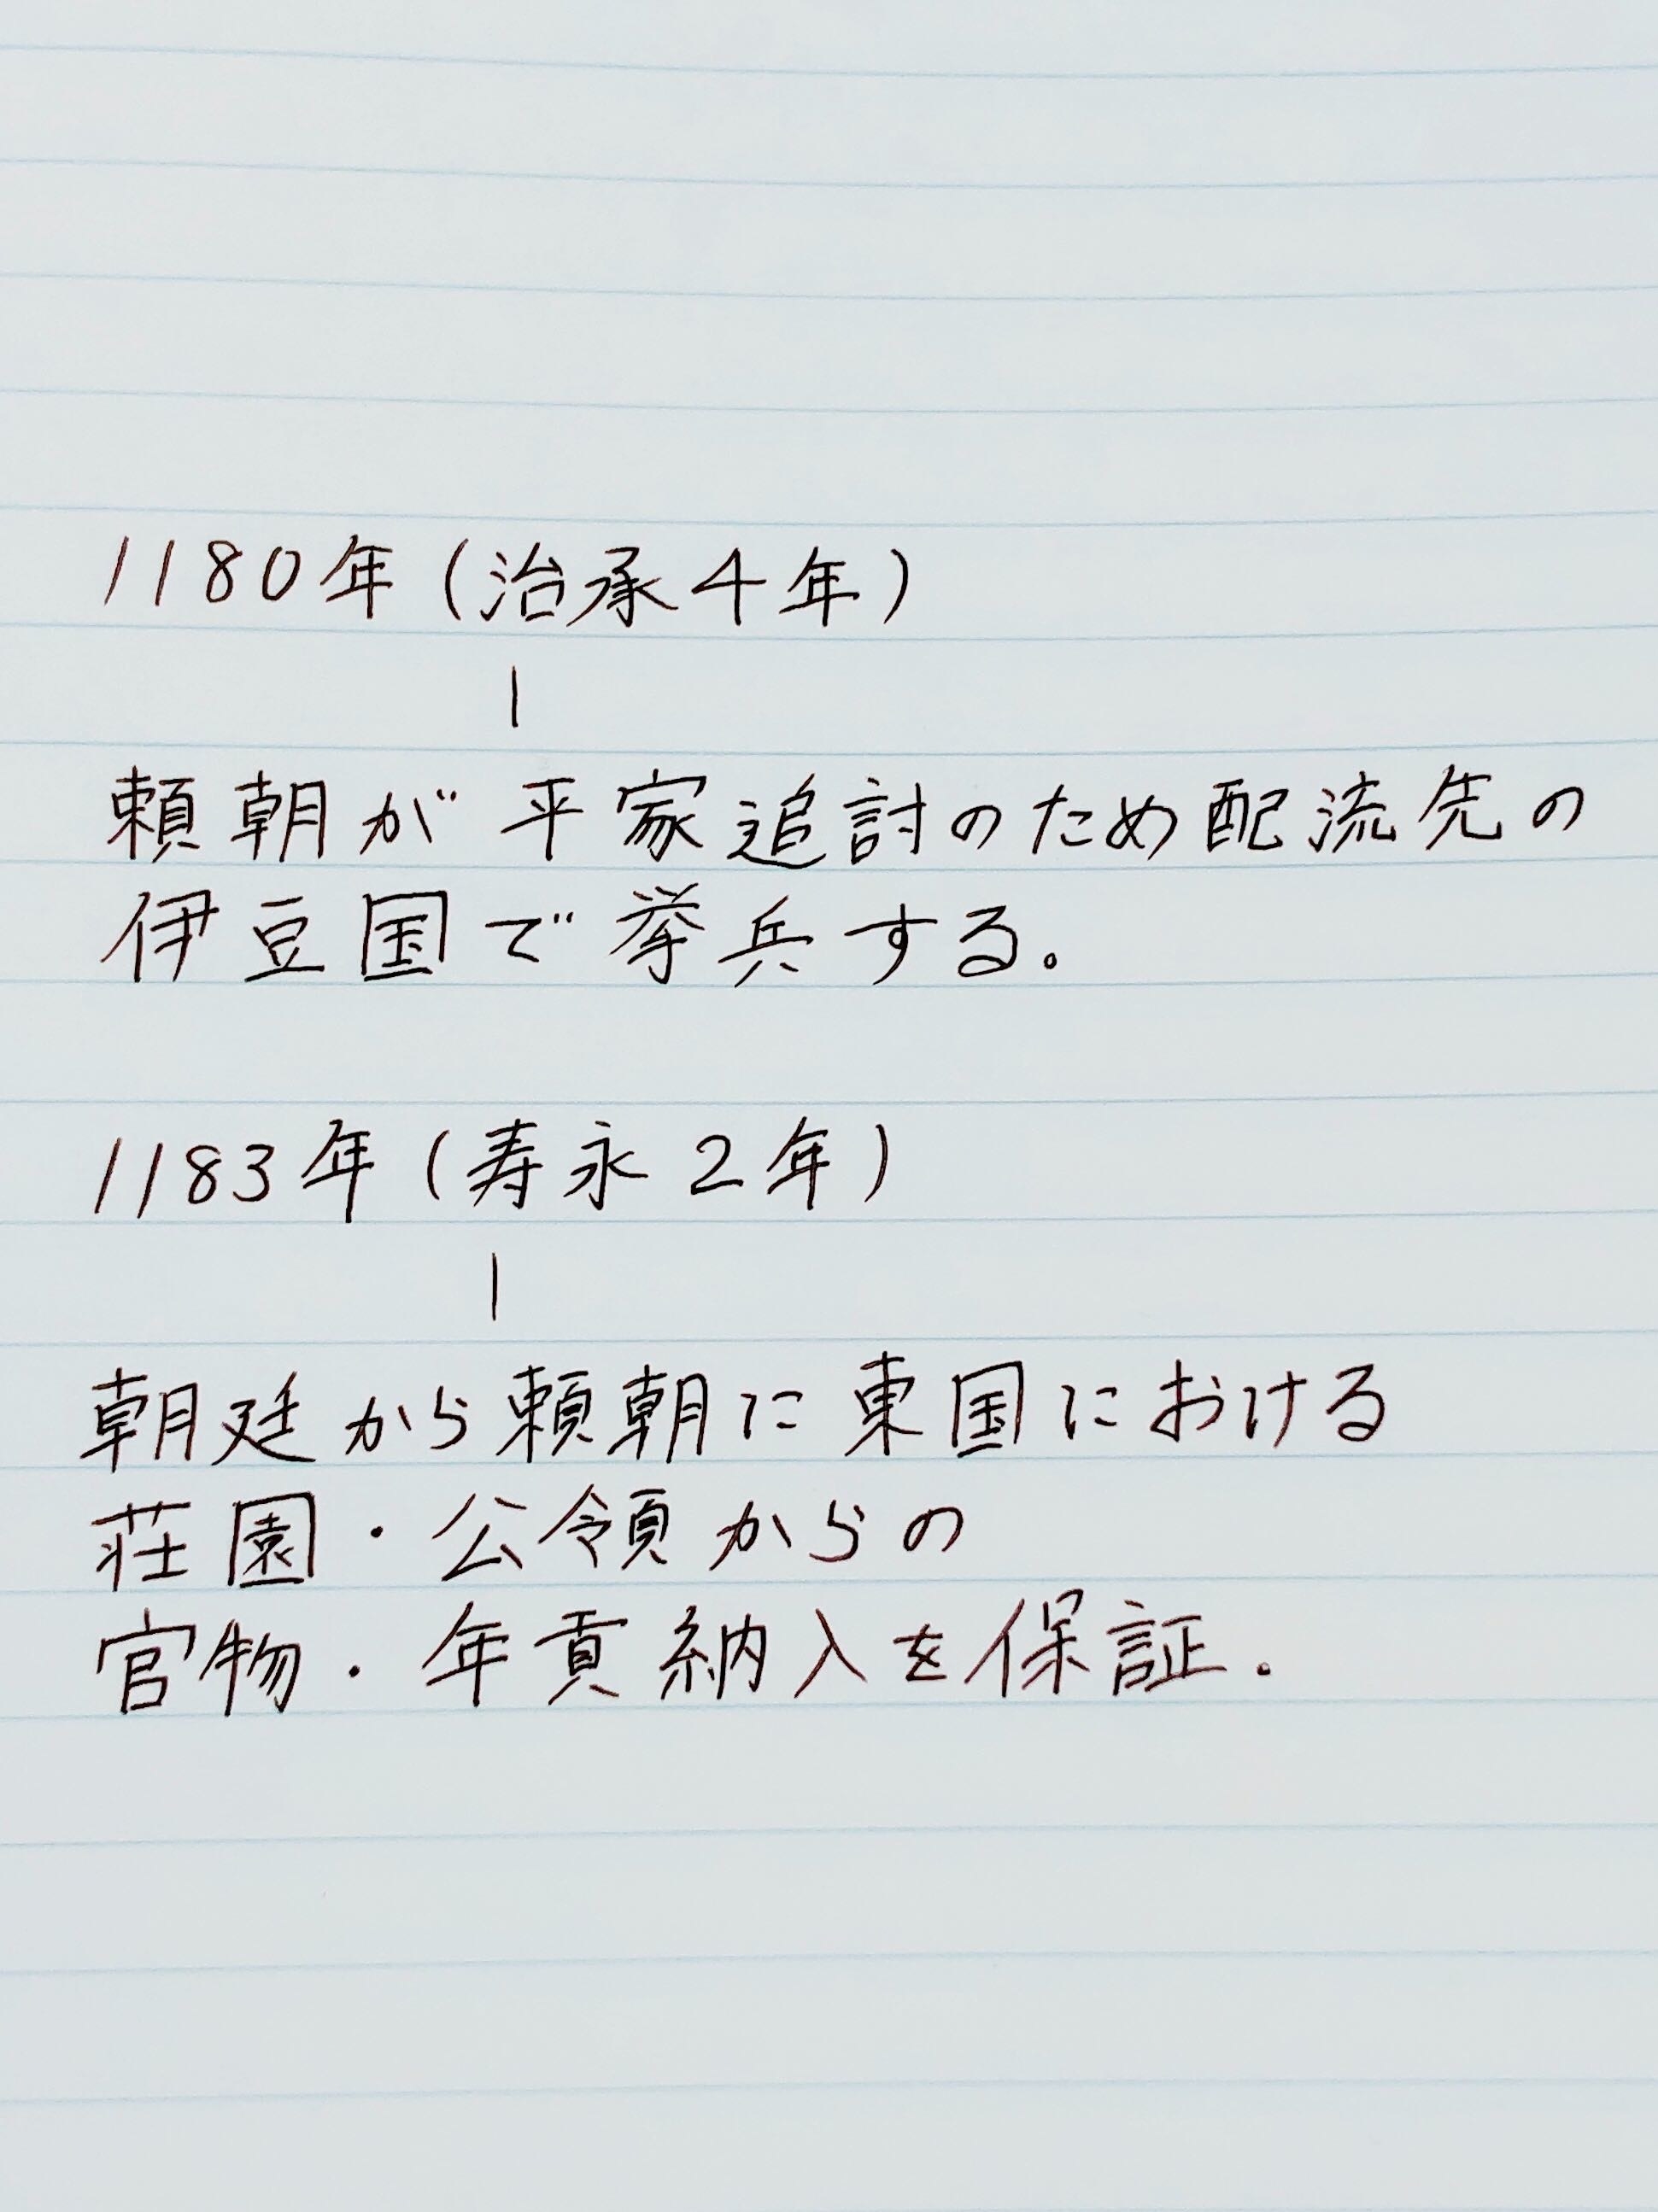 1180年(治承4年)
|
頼朝が平家追討のため配流先の
伊豆国で挙兵する。
1183年(寿永2年)
|
朝廷から頼朝に東国における
荘園・公領からの
官物・年貢納入を保証.